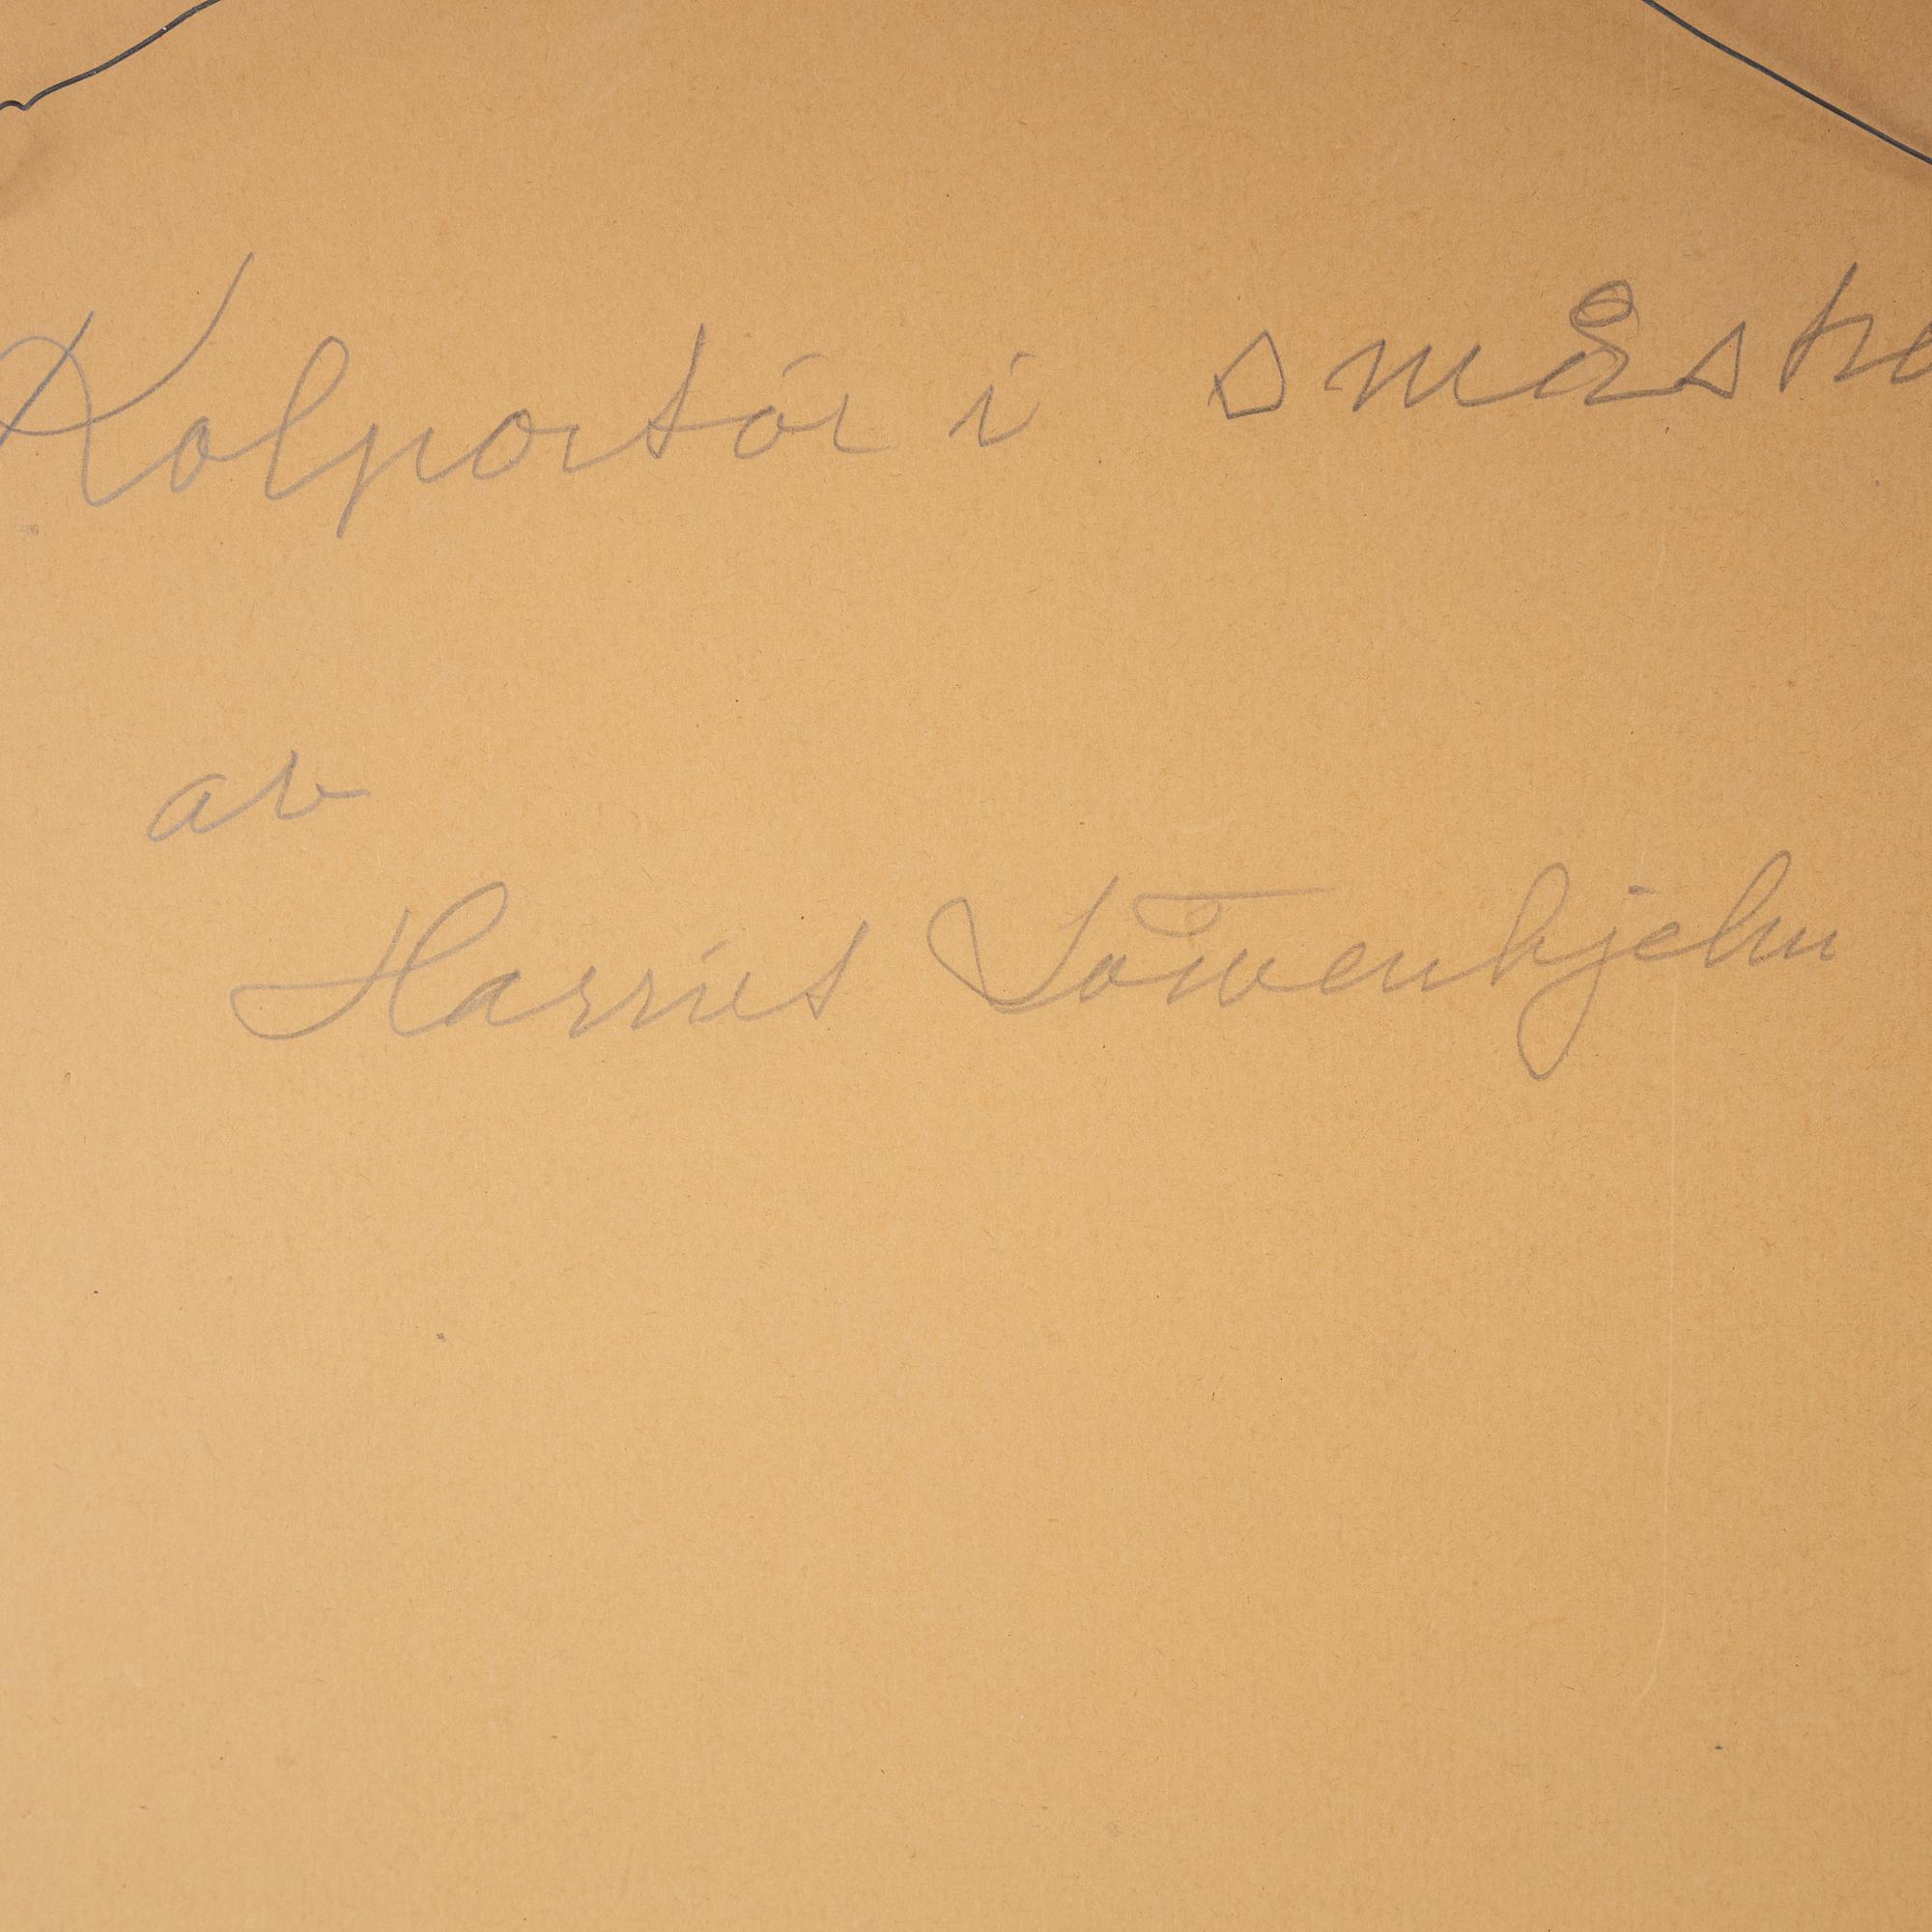 Kolportör i
av
Harriet Löwenhjelm